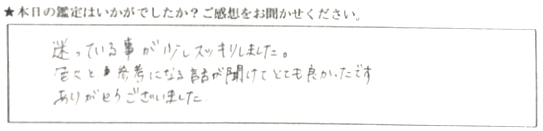 ★本日の鑑定はいかがでしたか？ご感想をお聞かせください。
迷っている事が少しスッキリしました。
色々と参考になる話が聞けてとても良かったです
ありがとうございました